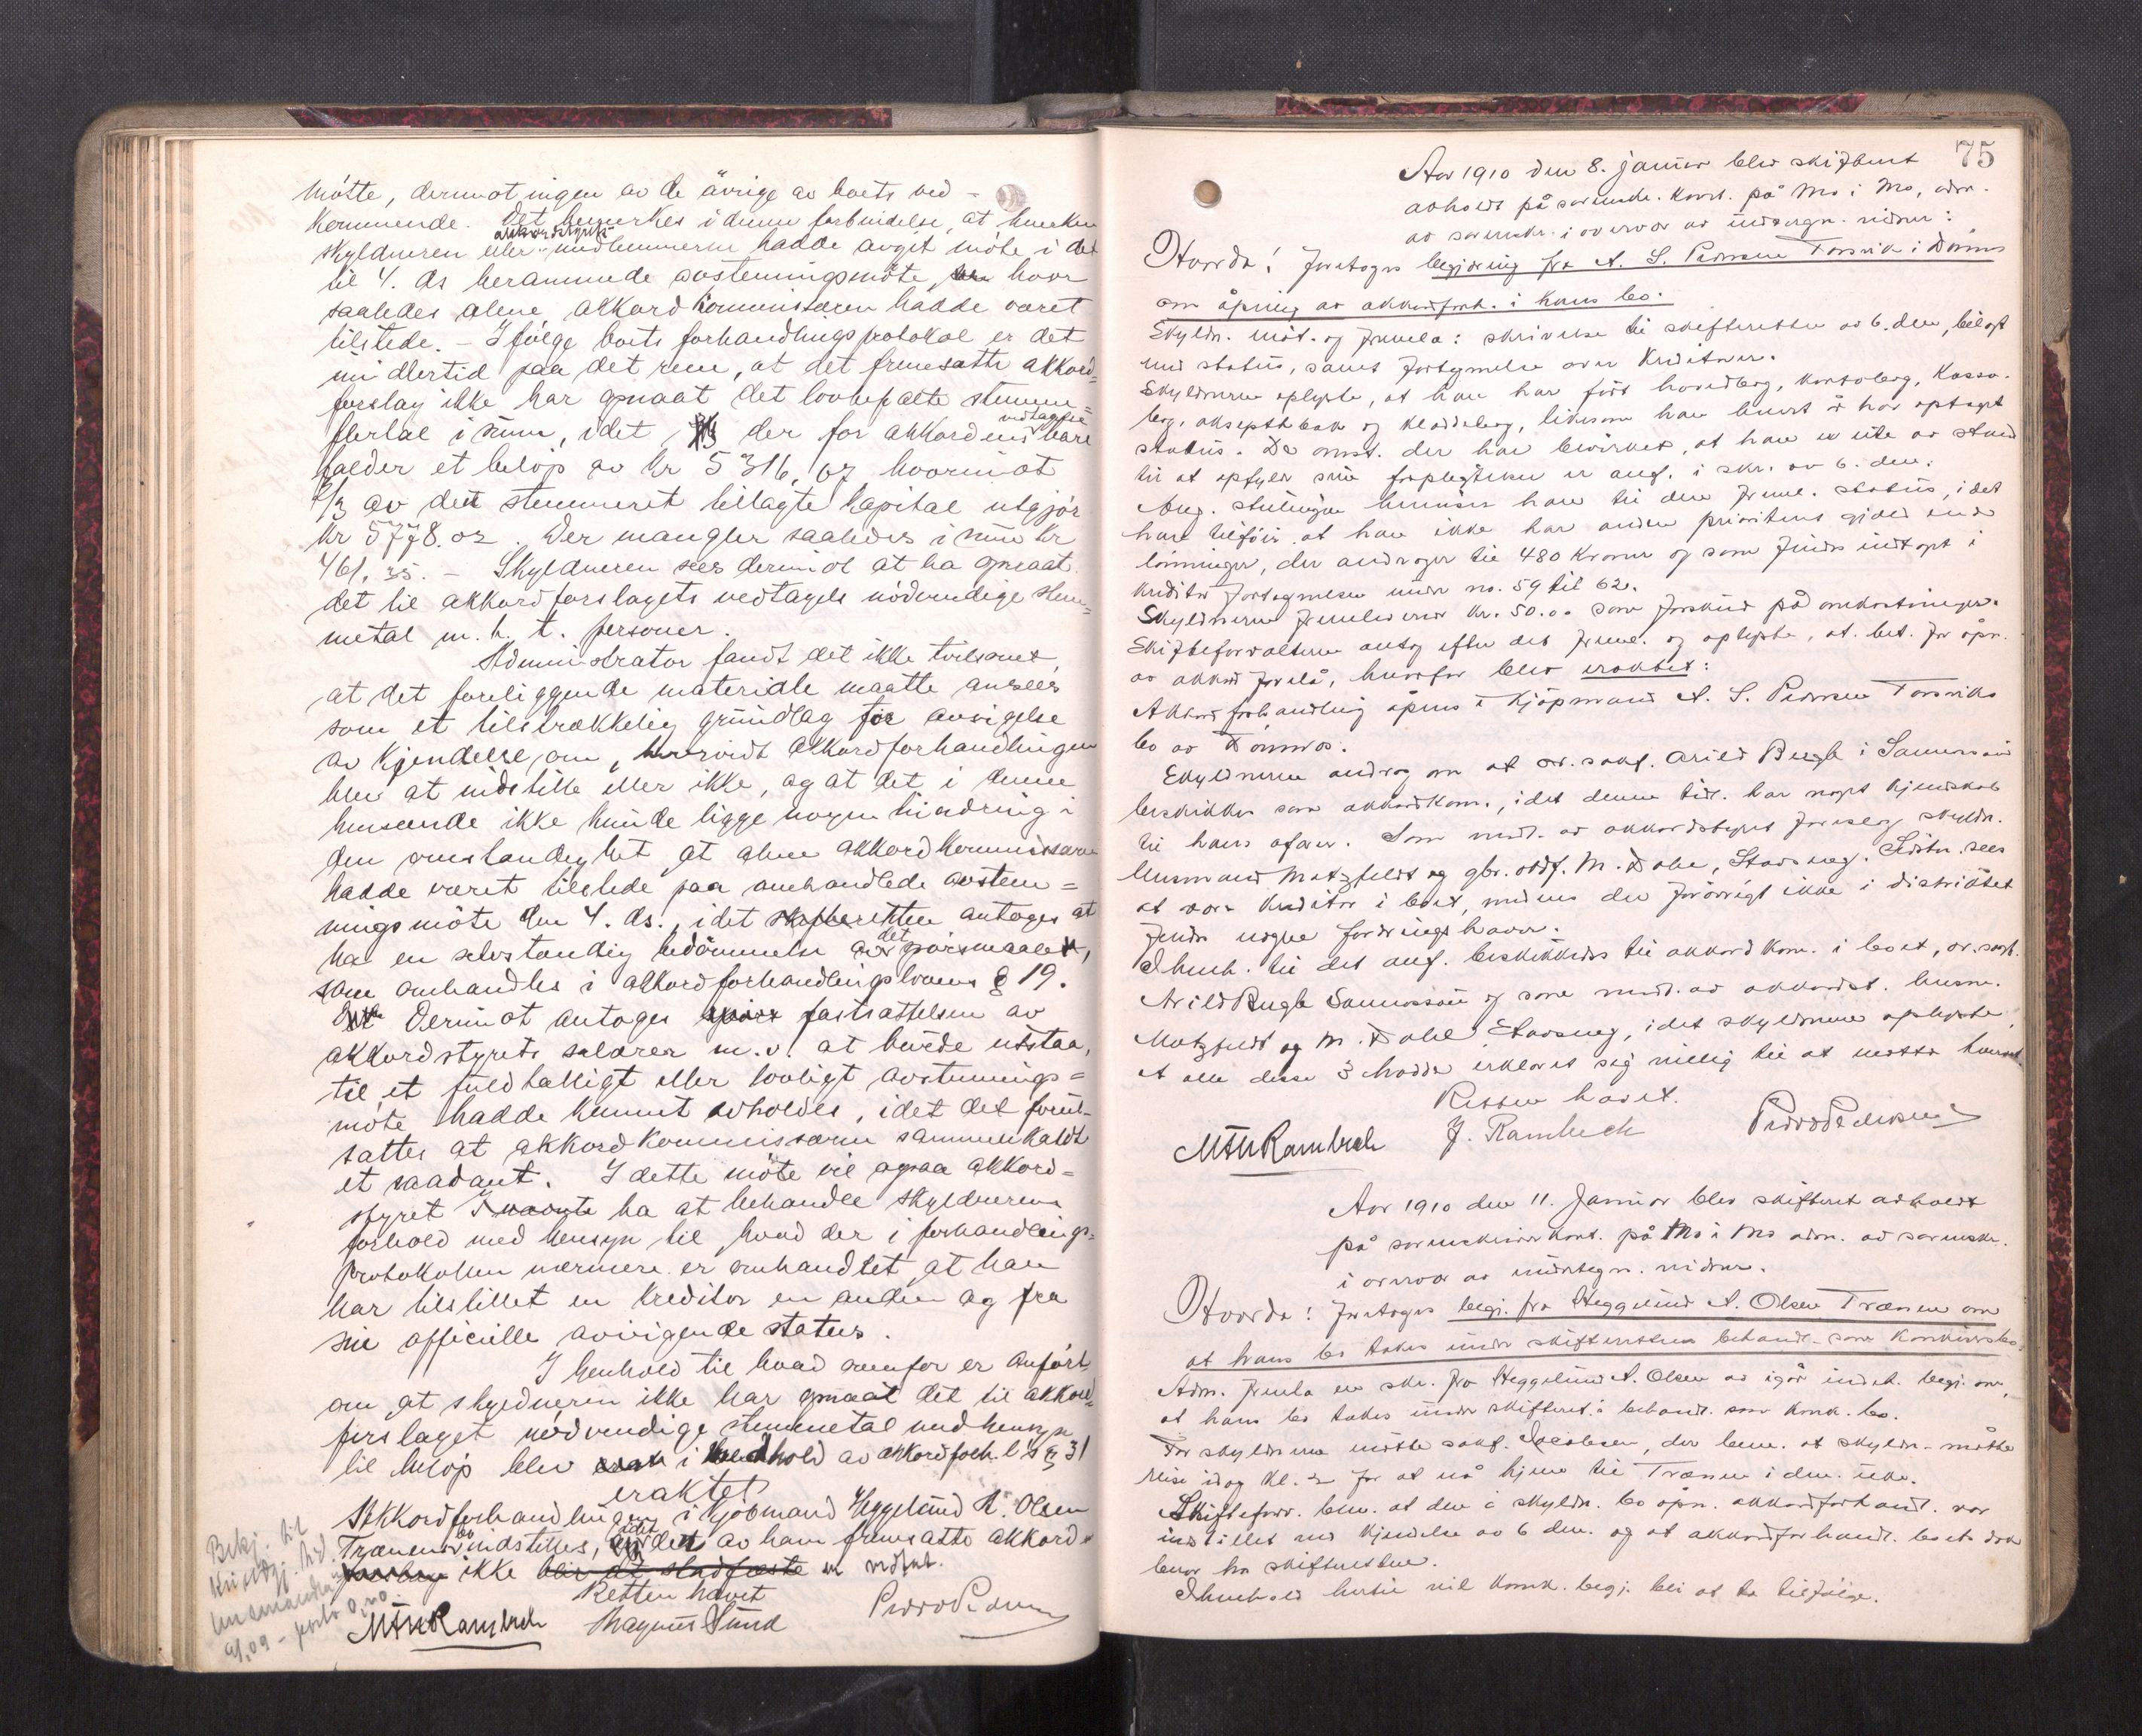 møtte, derimot ingen av de øvrige av boets ved-
kommende. Det bemerkes i denne forbindelse, at hverken
skyldneren eller akkordstyrets medlemmerne hadde avgit møte i det
til 4. ds berammede avstemningsmøte, hvor
saaledes alene akkordkommissæren hadde været
tilstede. – Ifølge boets forhandlingsprotokol er det
imidlertid paa det rene, at det fremsatte akkord=
forslag ikke har opnaaet det lovbefalte stemme=
flertal i sum, idet der for akkordens vedtagelse bare
holder et beløp av kr 5316,67 hvorimot
2/3 av det stemmeret tillagte kapital utgjør
kr 5778.02. Der mangler saaledes i sum kr
461,35. – Skyldneren sees derimot at ha opnaat
det til akkordforslagets vedtagelse nødvendige stem=
metal m. h. t. personer.
Administrator fandt det ikke tvilsomt,
at det foreliggende materiale maatte ansees
som et tilstrækkelig grundlag for avsigelse
av kjendelse om, hvorvidt akkordforhandlingen
blev at indstille eller ikke, og at det i denne
henseende ikke kunde ligge nogen hindring i
den omstændighet at alene akkordkommissæren
hadde været tilstede paa omhandlede avstem=
ningsmøte den 4. ds., idet skifteretten antages at
ha en selvstændig bedømmelse av det spørsmaal,
som omhandles i akkordforhandlingslovens § 19.
Derimot antages fastsættelsen av
akkordstyrets salærer m.v. at burde utstaa,
til et fuldtalligt eller lovligt avstemnings=
møte hadde kunnet avholdes, idet det forut-
sattes at akkordkommissæren sammenkaldt
et saadant. I dette møte vil ogsaa akkord=
styret ha at behandle skyldnerens
forhold med hensyn til hvad der i forhandlings=
protokollen nærmere er omhandlet, at han
har tilstillet en kreditor en anden og fra
sin officielle avvigende status.
I henhold til hvad ovenfor er anført
om, at skyldneren ikke har opnaat det til akkord=
forslaget nødvendige stemmetal med hensyn
til beløp blev i henhold av akkordforh. l's § 31
eraktet
Akkordforhandlingen i kjøbmand Heggelund A. Olsen
Trænens bo indstilles, idet det av ham fremsatte akkord=
forslag ikke blir at stadfæste er vedtat.
Retten hævet
MTHRambech Magnus Sund Peder Pedersen
Bekj. til
75
Aar 1910 den 8. januar blev skifteret
avholdt på sorenskr. kont. på Mo i Mo, adm.
av sorenskr. i overvær av undertegn. vidner:
Hvorda! Foretoges begjæring fra A. S. Pedersen Forsvik i Dønnes
om åpning av akkordforh. i hans bo.
Skyldn. møt. og fremla: skrivelse til skifteretten av 6. dm, bilagt
med status, samt fortegnelse over kreditorer.
Skyldneren oplyste, at han har ført hovedbog, kontobog, kasse-
bog, akseptbok og kladdebog, likesom han hvert år har optaget
status. De omst. der har bevirket, at han er ute av stand
til at opfylde sine forpligtelser er anf. i skr. av 6. dm.
Ang. stillingen henviser han til den freml. status, idet
han tilføier at han ikke har anden prioritets gjæld end
lønninger, der andrager til 480 kroner og som findes indtagt i
kreditorfortegnelsen under no. 59 til 62.
Skyldneren fremleverer kr. 50.00 som forskud på omkostninger.
Skifteforvalteren antog efter det freml. og oplyste, at bet. for åpn.
av akkord forelå, hvorfor blev eraktet:
Akkordforhandling åpnes i kjøpmand A. S. Pedersen Forsviks
bo av Dønnes.
Skyldneren androg om at or. sakf. Arild Bugh i Sannessøen
beskikkes som akkordkom., idet denne tidl. har noget kjendskab
til hans affærer. Som medl. av akkordstyret foreslog skyldn.
husmand Motzfeldt og gbr. M. Dahl, Stavseng. Sidstn. sees
at være kreditor i boet, medens der forøvrigt ikke i distriktet
findes nogen fordringshaver.
I henh. til det anf. beskikkedes til akkordkom. i boet, or. sakf.
Arild Bugh Sannessøen og som medl. av akkordst. husm.
Motzfeldt og M. Dahl Stavseng, idet skyldneren oplyste,
at alle disse 3 hadde erklæret sig villig til at motta hvervet.
Retten hævet.
MTHRambech J. Rambech Peder Pedersen
Aar 1910 den 11. Januar blev skifteret avholdt
på sorenskriverkont. på Mo i Mo adm. av sorenskr.
i overvær av undertegn. vidner.
Hvorda! Foretoges begj. fra Heggelund A. Olsen Trænen om
at hans bo takes under skifterettens behandl. som konkursbo.
Adm. fremla en skr. fra Heggelund A. Olsen av igår indeh. begj. om,
at hans bo takes under skifteret.s behandl. som konk. bo.
For skyldneren møtte sakf. Jacobsen, der bem. at skyldn. måtte
reise idag kl. 2 for at nå hjem til Trænen i den. uke.
Skifteforv. bem. at den i skyldn. bo åpn. akkordforhandl. var
indstillet ved kjendelse av 6 dm. og at akkordforhandl. boets dok
beror hos skifteretten.
I henhold hertil vil konk. begj. bli at ta tilfølge.